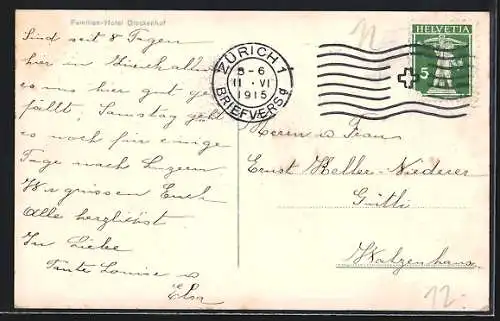 Familien-Hotel Glockenhof
Sind seit 8 Tagen
hier in Zürich allwo
es uns hier gut ge-
fällt, Samstag geht
es noch für einige
Tage nach Luzern
Wir grüssen Euch
Alle herzlichst
In Liebe
Tante Louise u
Elsa
ZÜRICH 1
5-6
11-VI
1915
BRIEFVERS
HELVETIA
5
Herrn u. Frau
Ernst Keller-Niederer
Grütli
Walzenhausen
12.